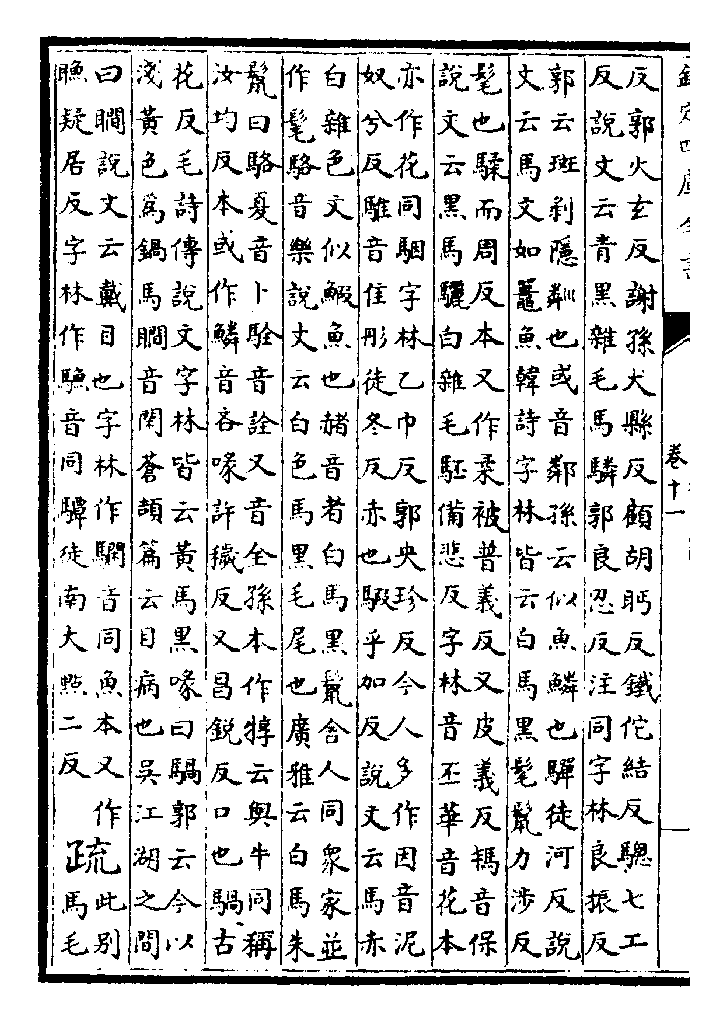 欽定四庫全書
卷十一
反郭火玄反謝孫犬縣反顧胡眄反鐵佗結反驄七工
反說文云青黑雜毛馬驎郭良忍反注同字林良振反
郭云斑剥隱粼也或音鄰孫云似魚鱗也驒徒河反說
文云馬文如鼉魚韓詩字林皆云白馬黑髦鬛力涉反
髦也騥而周反本又作柔被普義反又皮義反禡音保
說文云黑馬驪白雜毛駓備悲反字林音丕華音花本
亦作花同駰字林乙巾反郭央珍反今人多作因音泥
奴兮反騅音隹彤徒冬反赤也騢乎加反說文云馬赤
白雜色文似鰕魚也赭音者白馬黑鬛舍人同眾家並
作髦駱音樂說文云白色馬黑毛尾也廣雅云白馬朱
鬛曰駱戛音卜駩音詮又音全孫本作犉云與牛同稱
汝均反本或作鱗音吝喙許穢反又昌銳反口也騧古
花反毛詩傳說文字林皆云黃馬黑喙曰騧郭云今以
淺黃色為鍋馬瞷音閑蒼頡篇云目病也吳江湖之間
曰瞷說文云戴目也字林作音同魚本又作
疑居反字林作音同驔徒南大點二反
疏
此別
馬毛